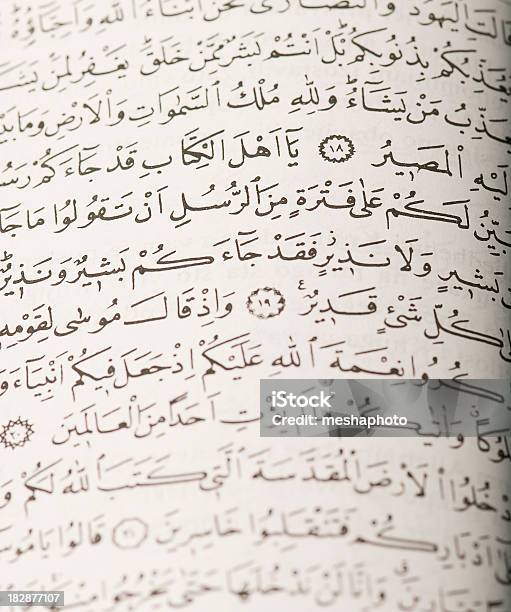 قَالَتِ الْيَهُودُ وَالنَّصَارٰى نَحْنُ اَبْنَاءُ اللّٰهِ وَاَحِبَّاؤُهُ
يُعَذِّبُكُمْ بِذُنُوبِكُمْ بَلْ اَنْتُمْ بَشَرٌ مِمَّنْ خَلَقَ يَغْفِرُ لِمَنْ يَشَا
يُعَذِّبُ مَنْ يَشَاءُ وَلِلّٰهِ مُلْكُ السَّمٰوَاتِ وَالْاَرْضِ وَمَا بَيْ
لَيْهِ الْمَصِيرُ ١٨ يَا اَهْلَ الْكِتَابِ قَدْ جَاءَكُمْ رَسُ
يُبَيِّنُ لَكُمْ عَلٰى فَتْرَةٍ مِنَ الرُّسُلِ اَنْ تَقُولُوا مَا جَا
بَشِيرٍ وَلَا نَذِيرٍ فَقَدْ جَاءَكُمْ بَشِيرٌ وَنَذِيرٌ
كُلِّ شَيْءٍ قَدِيرٌ ١٩ وَاِذْ قَالَ مُوسٰى لِقَوْمِهِ
كُرُوا نِعْمَةَ اللّٰهِ عَلَيْكُمْ اِذْ جَعَلَ فِيكُمْ اَنْبِيَاءَ وَ
لُوكًا وَاٰتٰيكُمْ اَحَدًا مِنَ الْعَالَمِينَ
دْخُلُوا الْاَرْضَ الْمُقَدَّسَةَ الَّتِي كَتَبَ اللّٰهُ لَكُمْ وَ
اَدْبَارِكُمْ فَتَنْقَلِبُوا خَاسِرِينَ ٢١ قَالُوا يَا مُوسٰ
وَاِنَّا لَنْ نَدْخُلَهَا حَتّٰى يَخْرُجُوا مِنْهَا
iStock
Credit: meshaphoto
182877107